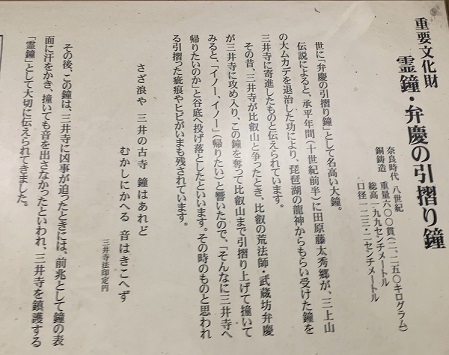 重要文化財
霊鐘・弁慶の引摺り鐘
奈良時代 八世紀
重量六〇〇貫(二、二五〇キログラム)
銅鋳造 総高一九九センチメートル
口径一二三・二センチメートル
世に「弁慶の引摺り鐘」として名高い大鐘。
伝説によると、承平年間(十世紀前半)に田原藤太秀郷が、三上山
の大ムカデを退治した功により、琵琶湖の龍神からもらい受けた鐘を
三井寺に寄進したものと伝えられています。
その昔、三井寺が比叡山と争ったとき、比叡の荒法師・武蔵坊弁慶
が三井寺に攻め入り、この鐘を奪って比叡山まで引摺り上げて撞いて
みると、「イノー、イノー」(帰りたい)と響いたので、「そんなに三井寺へ
帰りたいのか」と谷底へ投げ落としたといいます。その時のものと思われ
る引摺った疵痕やヒビがいまも残されています。
さざ浪や 三井の古寺 鐘はあれど
むかしにかへる 音はきこへず
三井寺法印定円
その後、この鐘は、三井寺に凶事が迫ったときには、前兆として鐘の表
面に汗をかき、撞いても音を出さなかったといわれ、三井寺を鎮護する
「霊鐘」として大切に伝えられてきました。